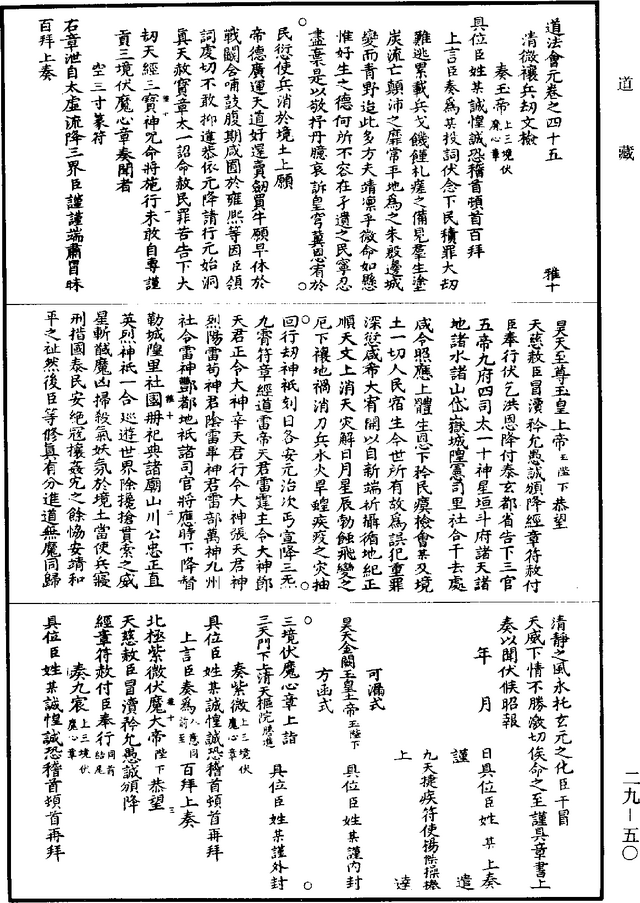 道藏
道法會元卷之四十五　雅十
清微禳兵劫文檢
奏玉帝上三境伏魔心章
具位臣姓某誠惶誠恐稽首頓首百拜
上言臣奏為某投詞伏念下民積罪大劫
難逃累載兵戈饑饉札瘥之備見羣生塗
炭流亡顛沛之靡常平地為之朱殷邊城
變而青野造此多方夫靖凛乎微命如懸
惟好生之德何所不容在孑遺之民寧忍
盡棄是以敬抒丹臆哀訴皇穹冀恩宥於
民愆使兵消於境土上願
帝德廣運天道好還賣劒買牛願早休於
戰鬪含哺鼓腹期咸囿於雍熙等因臣領
詞虔切不敢抑違恭依元降請行元始洞
真天赦寶章太一詔命赦民罪苦告下大
劫天經三寶神咒命將施行未敢自專謹
貢三境伏魔心章奏聞者
空三寸篆符
右章泄自太虛流降三界臣謹謹端肅冒昧
百拜上奏
昊天至尊玉皇上帝玉陛下恭望
天慈赦臣冒瀆矜允愚誠頒降經章符赦付
臣奉行伏乞洪恩降付泰玄都省告下三官
五帝九府四司太一十神星垣斗府諸天諸
地諸水諸山岱嶽城隍憲司里社合干去處
咸令照應上體生恩下矜民瘼檢會某及境
土一切人民宿生今世所有故為誤犯重罪
深愆咸希大宥開以自新端祈攝循地紀正
順天文上消天災解日月星辰勃蝕飛變之
厄下禳地禍消刀兵水火旱蝗疾疫之灾抽
回行劫神祇刻日各安元治次丐宣降三炁
九霄符章經道雷帝天君雷霆主令大神鄧
天君正令大神辛天君行令大神張天君神
烈陽雷苟神君陰雷畢神君雷部萬神九州
社令雷神酆都地祇諸司官將應時下降督
勒城隍里社國册祀典諸廟山川公忠正直
英烈神祇一合巡遊世界除攙搶賁索之威
星斬馘魔凶掃殺氣妖氛於境土當使兵寢
刑措國泰民安絶寇攘姦宄之餘恊安靖和
平之祉然後臣等修真有分進道無魔同歸
清靜之風永托玄元之化臣干冒
天威下情不勝激切俟命之至謹具章書上
奏以聞伏候昭報
年　月　日具位臣姓　某　上奏
謹遣
九天捷疾符使楊傑操機
上達
可漏式
昊天金闕玉皇上帝玉陛下　具位臣姓某謹内封
方函式
三境伏魔心章上詣
三天門下上清天樞院騰進　具位臣姓某謹外封
奏紫微上三境伏魔心章
具位臣姓某誠惶誠恐稽首頓首再拜
上言臣奏為前至入意同百拜上奏
北極紫微伏魔大帝陛下恭望
天慈赦臣冒瀆矜允愚誠頒降
經章符赦付臣奉行同前結尾
奏九宸上三境伏魔心章
具位臣姓某誠惶誠恐稽首頓首再拜
二九—五〇